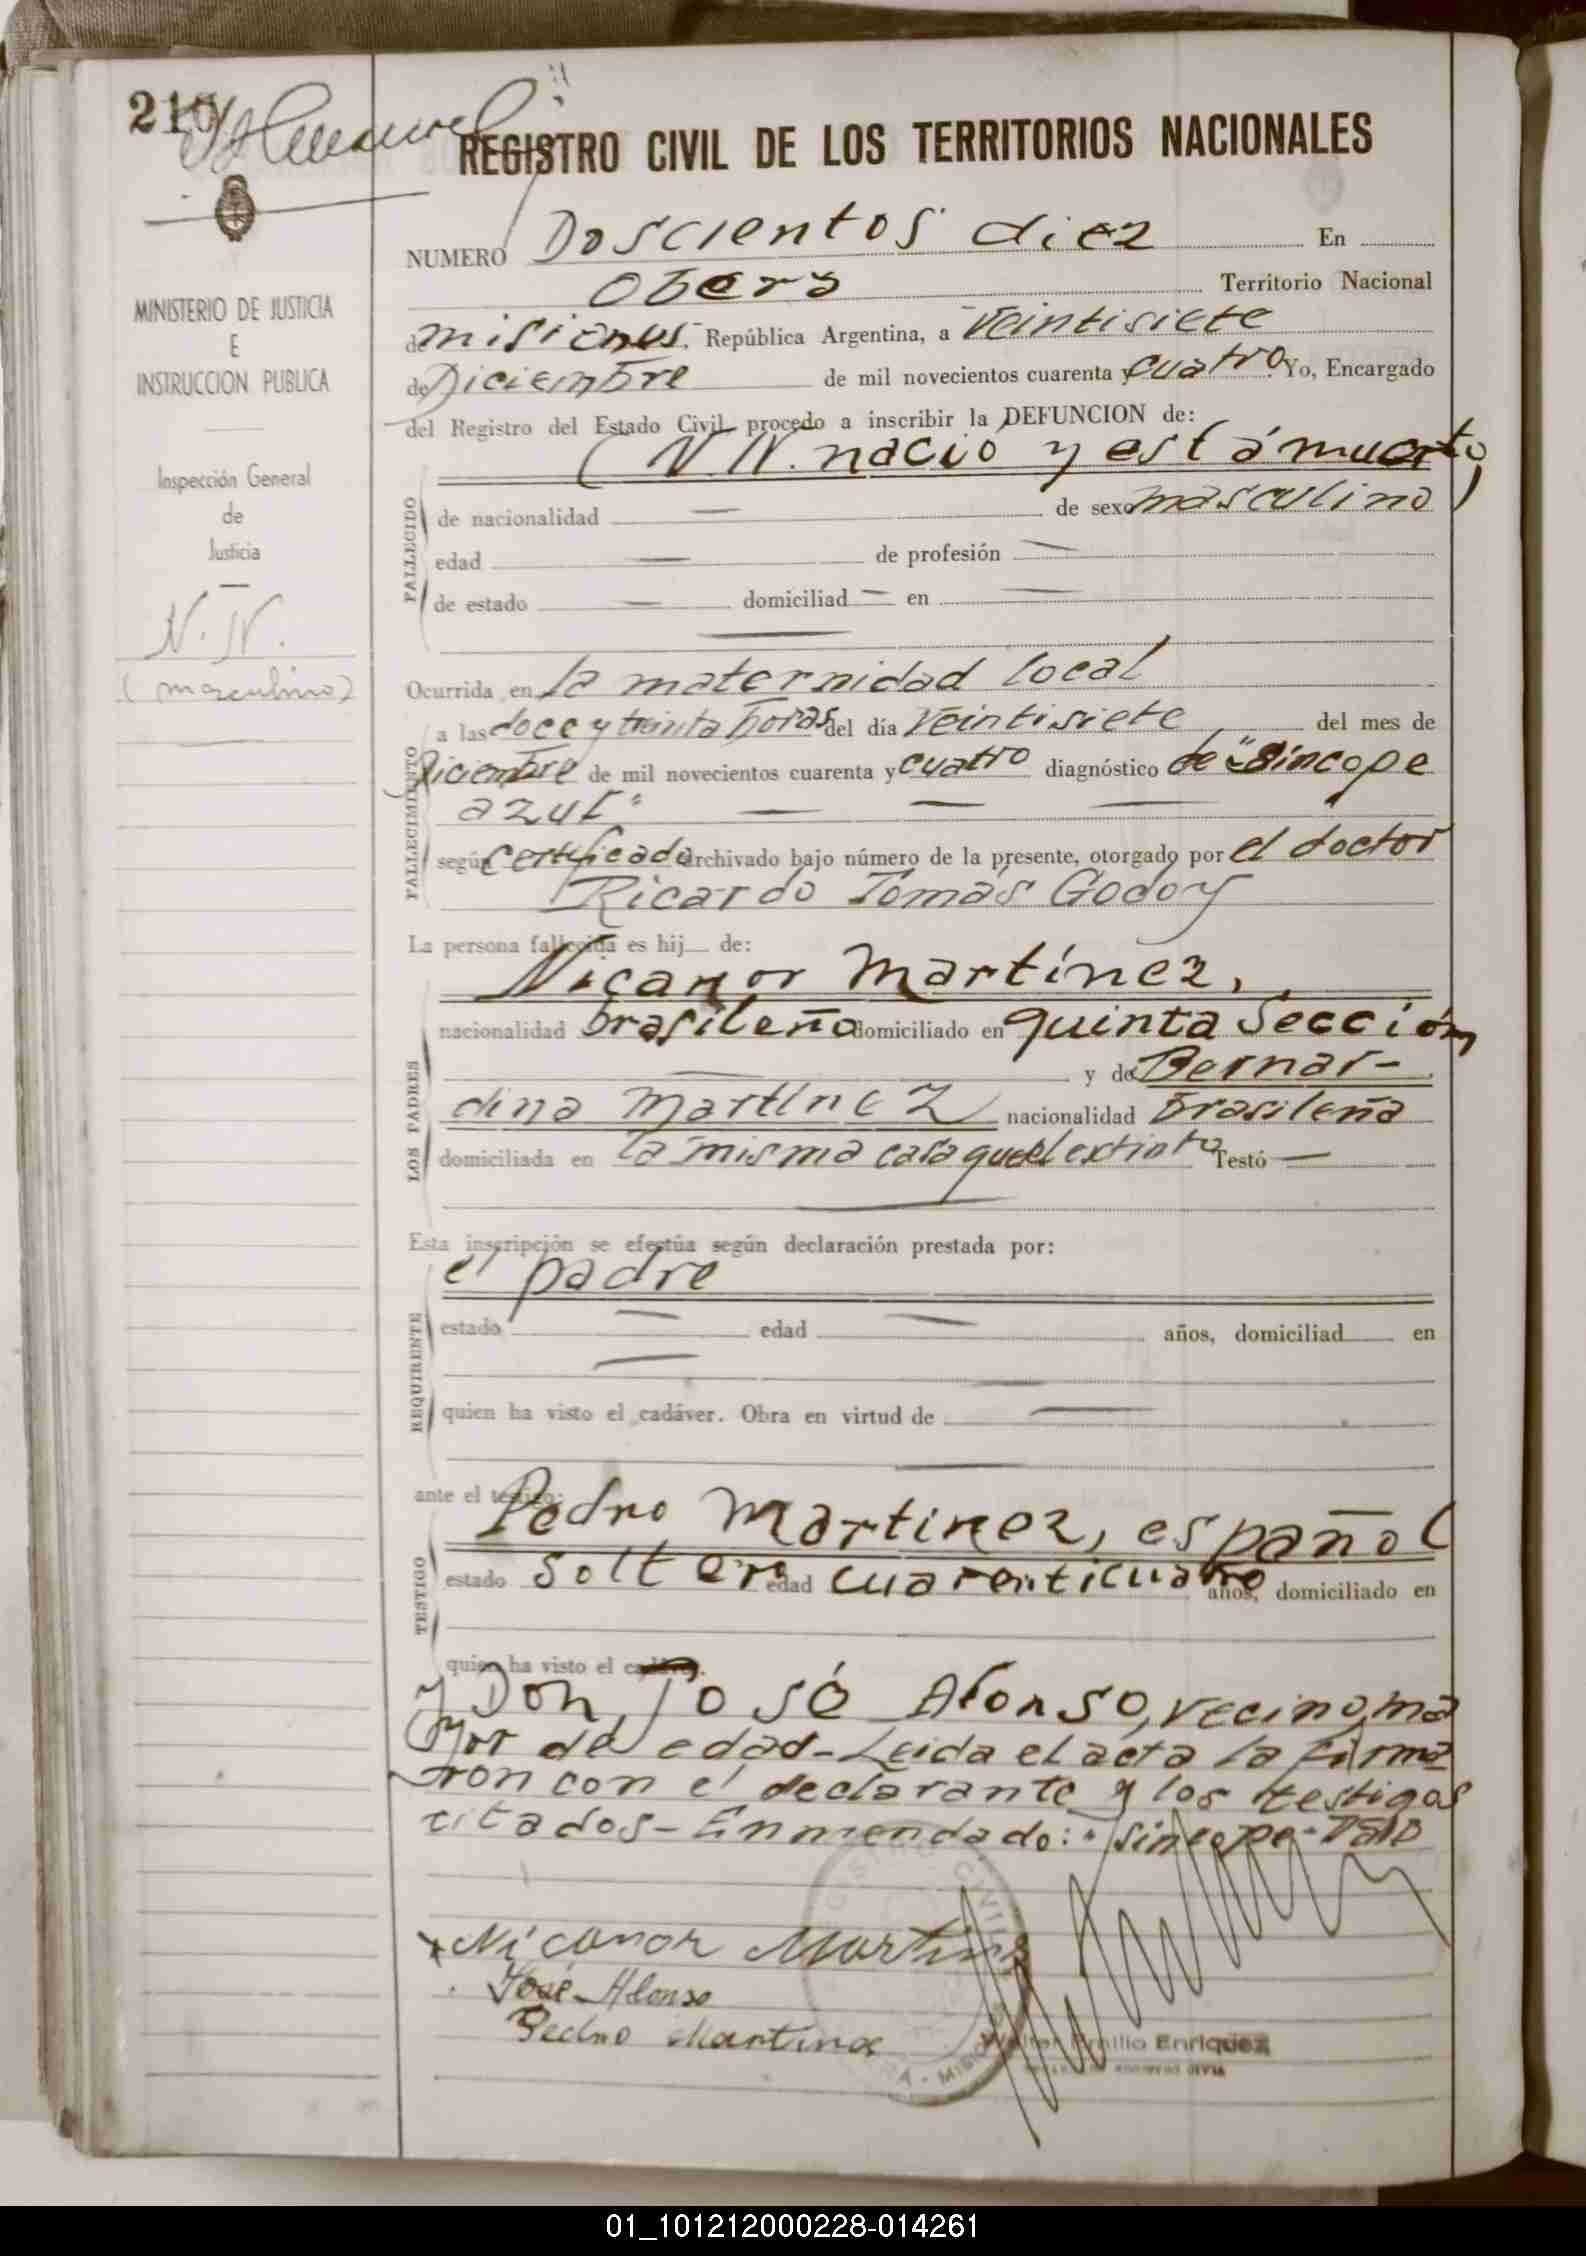 210
REGISTRO CIVIL DE LOS TERRITORIOS NACIONALES
MINISTERIO DE JUSTICIA
E
INSTRUCCION PUBLICA
Inspección General
de
Justicia
N. N.
(masculino)
NUMERO Doscientos diez En
Oberá Territorio Nacional
de misiones, República Argentina, a Veintisiete
de Diciembre de mil novecientos cuarenta y cuatro Yo, Encargado
del Registro del Estado Civil procedo a inscribir la DEFUNCION de:
(N N. nacio y está muerto
FALLECIDO
de nacionalidad — de sexo masculino)
edad — de profesión —
de estado — domiciliad — en —
Ocurrida en la maternidad local
FALLECIMIENTO
a las doce y treinta horas del día Veintisiete del mes de
Diciembre de mil novecientos cuarenta y cuatro diagnóstico de "sincope
azul" — — —
según certificado archivado bajo número de la presente, otorgado por el doctor
Ricardo Tomás Godoy
La persona fallecida es hij de:
LOS PADRES
Nicanor Martínez,
nacionalidad brasileño domiciliado en quinta Sección
— y de Bernar-
dina Martínez nacionalidad brasileña
domiciliada en la misma casa que el extinto Testó —
Esta inscripción se efectúa según declaración prestada por:
REQUIRENTE
el padre
estado — edad — años, domiciliad en
— —
quien ha visto el cadáver. Obra en virtud de —
ante el testigo:
TESTIGO
Pedro Martinez, español
estado soltero edad cuarenticuatro años, domiciliado en
quien ha visto el cadáver.
y Don José Alonso, vecino, ma
yor de edad - Leida el acta la firma
ron con el declarante y los testigos
citados - Enmendado: "sincope"
Nicanor Martinez
José Alonso
Pedro Martinez
REGISTRO CIVIL
Walter Emilio Enriquez
01_101212000228-014261